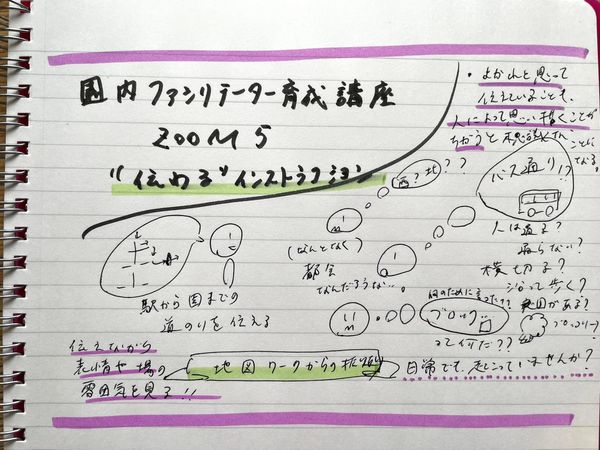 園内ファシリテーター育成講座
ZOOM5
"伝わる"インストラクション
・よかれと思って
伝えていることも、
人によって思い描くことが
ちがうと
ことになる。
西?北???
バス通り!?
(なんとなく)
都会
なんだろうな…。
人は通る?
通らない?
横切る?
沿って歩く?
駅から園までの
道のりを伝える
何のために言った??
ブロック…
って何だ??
ブロッコリー?
伝えながら
表情や場の
雰囲気を見る!!
地図ワークからの振返り
日常でも起こっていませんか?